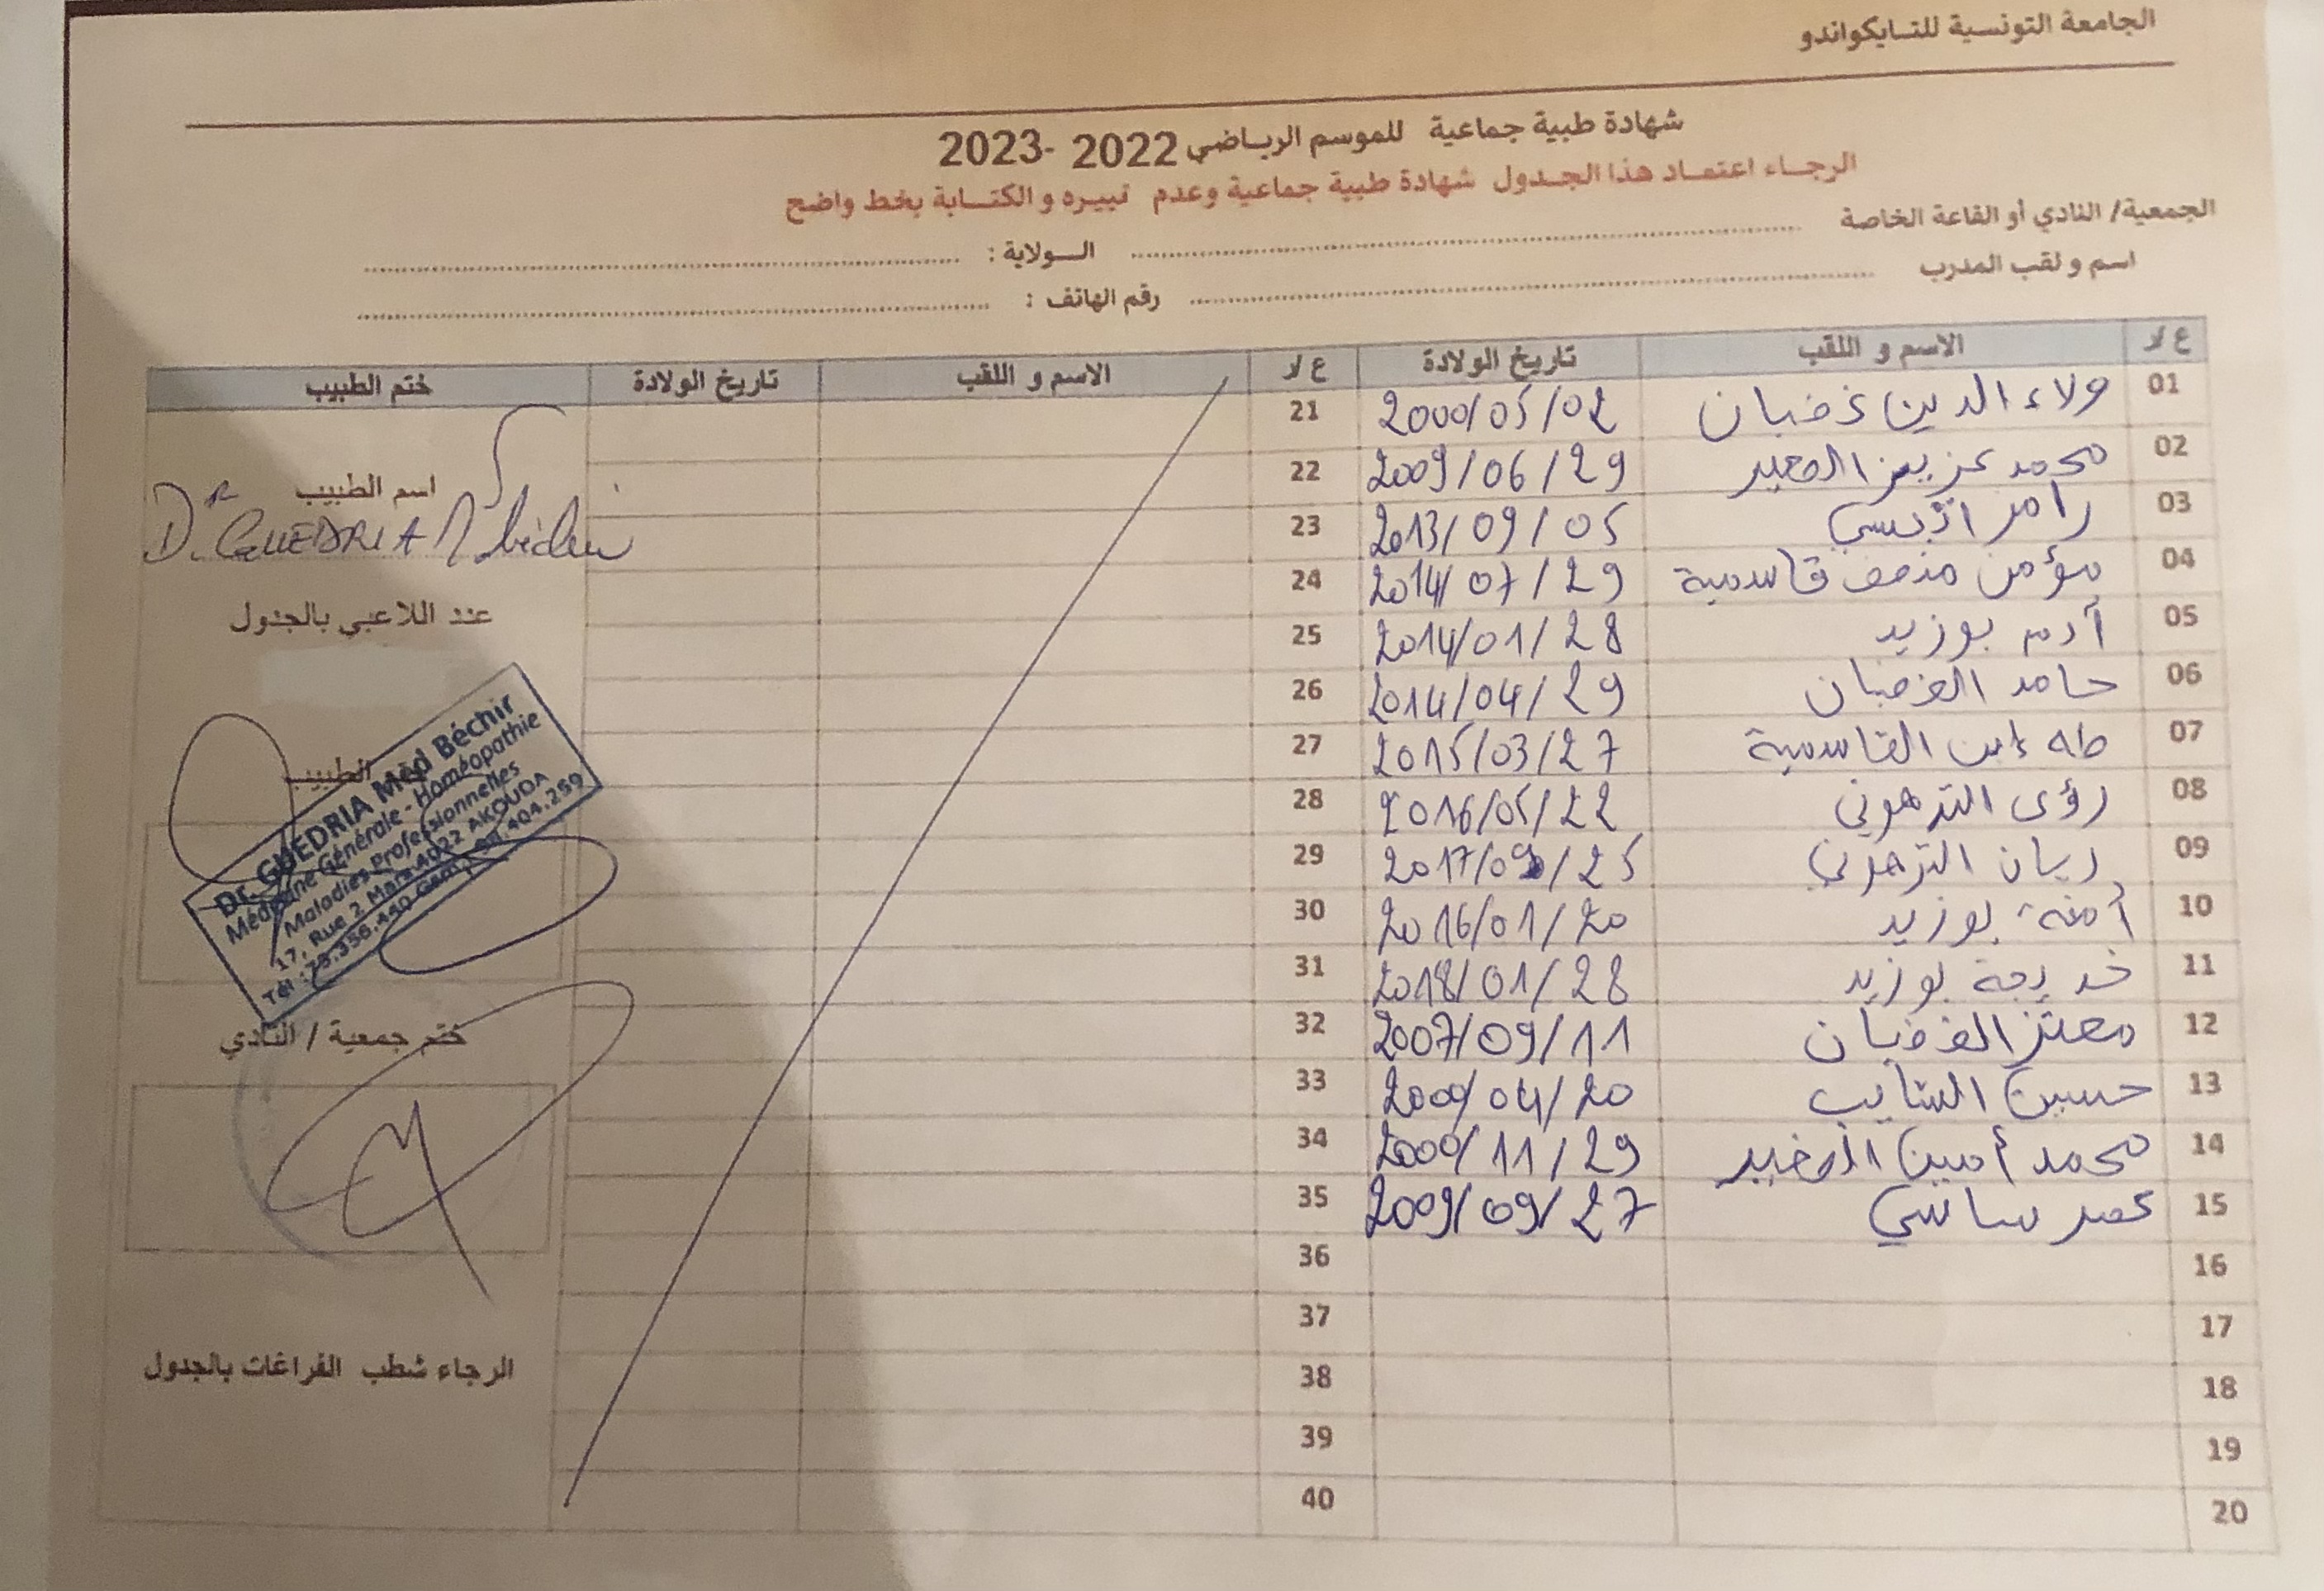 الجامعة التونسية للتايكواندو
شهادة طبية جماعية للموسم الرياضي 2022 -2023
الرجاء اعتماد هذا الجدول شهادة طبية جماعية وعدم تغييره و الكتابة بخط واضح
الجمعية/ النادي أو القاعة الخاصة ........ الولاية : ........
اسم و لقب المدرب ........ رقم الهاتف : ........
ع/د الاسم و اللقب تاريخ الولادة ع/د الاسم و اللقب تاريخ الولادة ختم الطبيب
01 ولاء الدين غضبان 2000/05/02 21
02 محمد عزيز 2009/06/29 22
03 رامر 2013/09/05 23
04 مؤمن منصف قاسمية 2014/07/29 24
05 آدم بوزيد 2014/01/28 25
06 حامد الغضبان 2014/04/29 26
07 طه إبن القاسمية 2015/03/27 27
08 رؤى الترهوني 2016/05/22 28
09 ريان الترهوني 2017/09/25 29
10 أمنة بوزيد 2016/01/20 30
11 خديجة بوزيد 2018/01/28 31
12 معتز الغضبان 2007/09/11 32
13 حسين الشايب 2000/04/20 33
14 محمد أمين 2000/11/29 34
15 عمر ساسي 2009/09/27 35
16 36
17 37
18 38
19 39
20 40
اسم الطبيب
Dr GUEDRIA
عند اللاعبي بالجدول
الطبيب
Dr. GUEDRIA Med Béchir
Médecine Générale - Homéopathie
Maladies Professionnelles
17, Rue 2 Mars 4022 AKOUDA
Tél : 73.356.440 Gsm : 98.404.259
ختم جمعية / النادي
الرجاء شطب الفراغات بالجدول